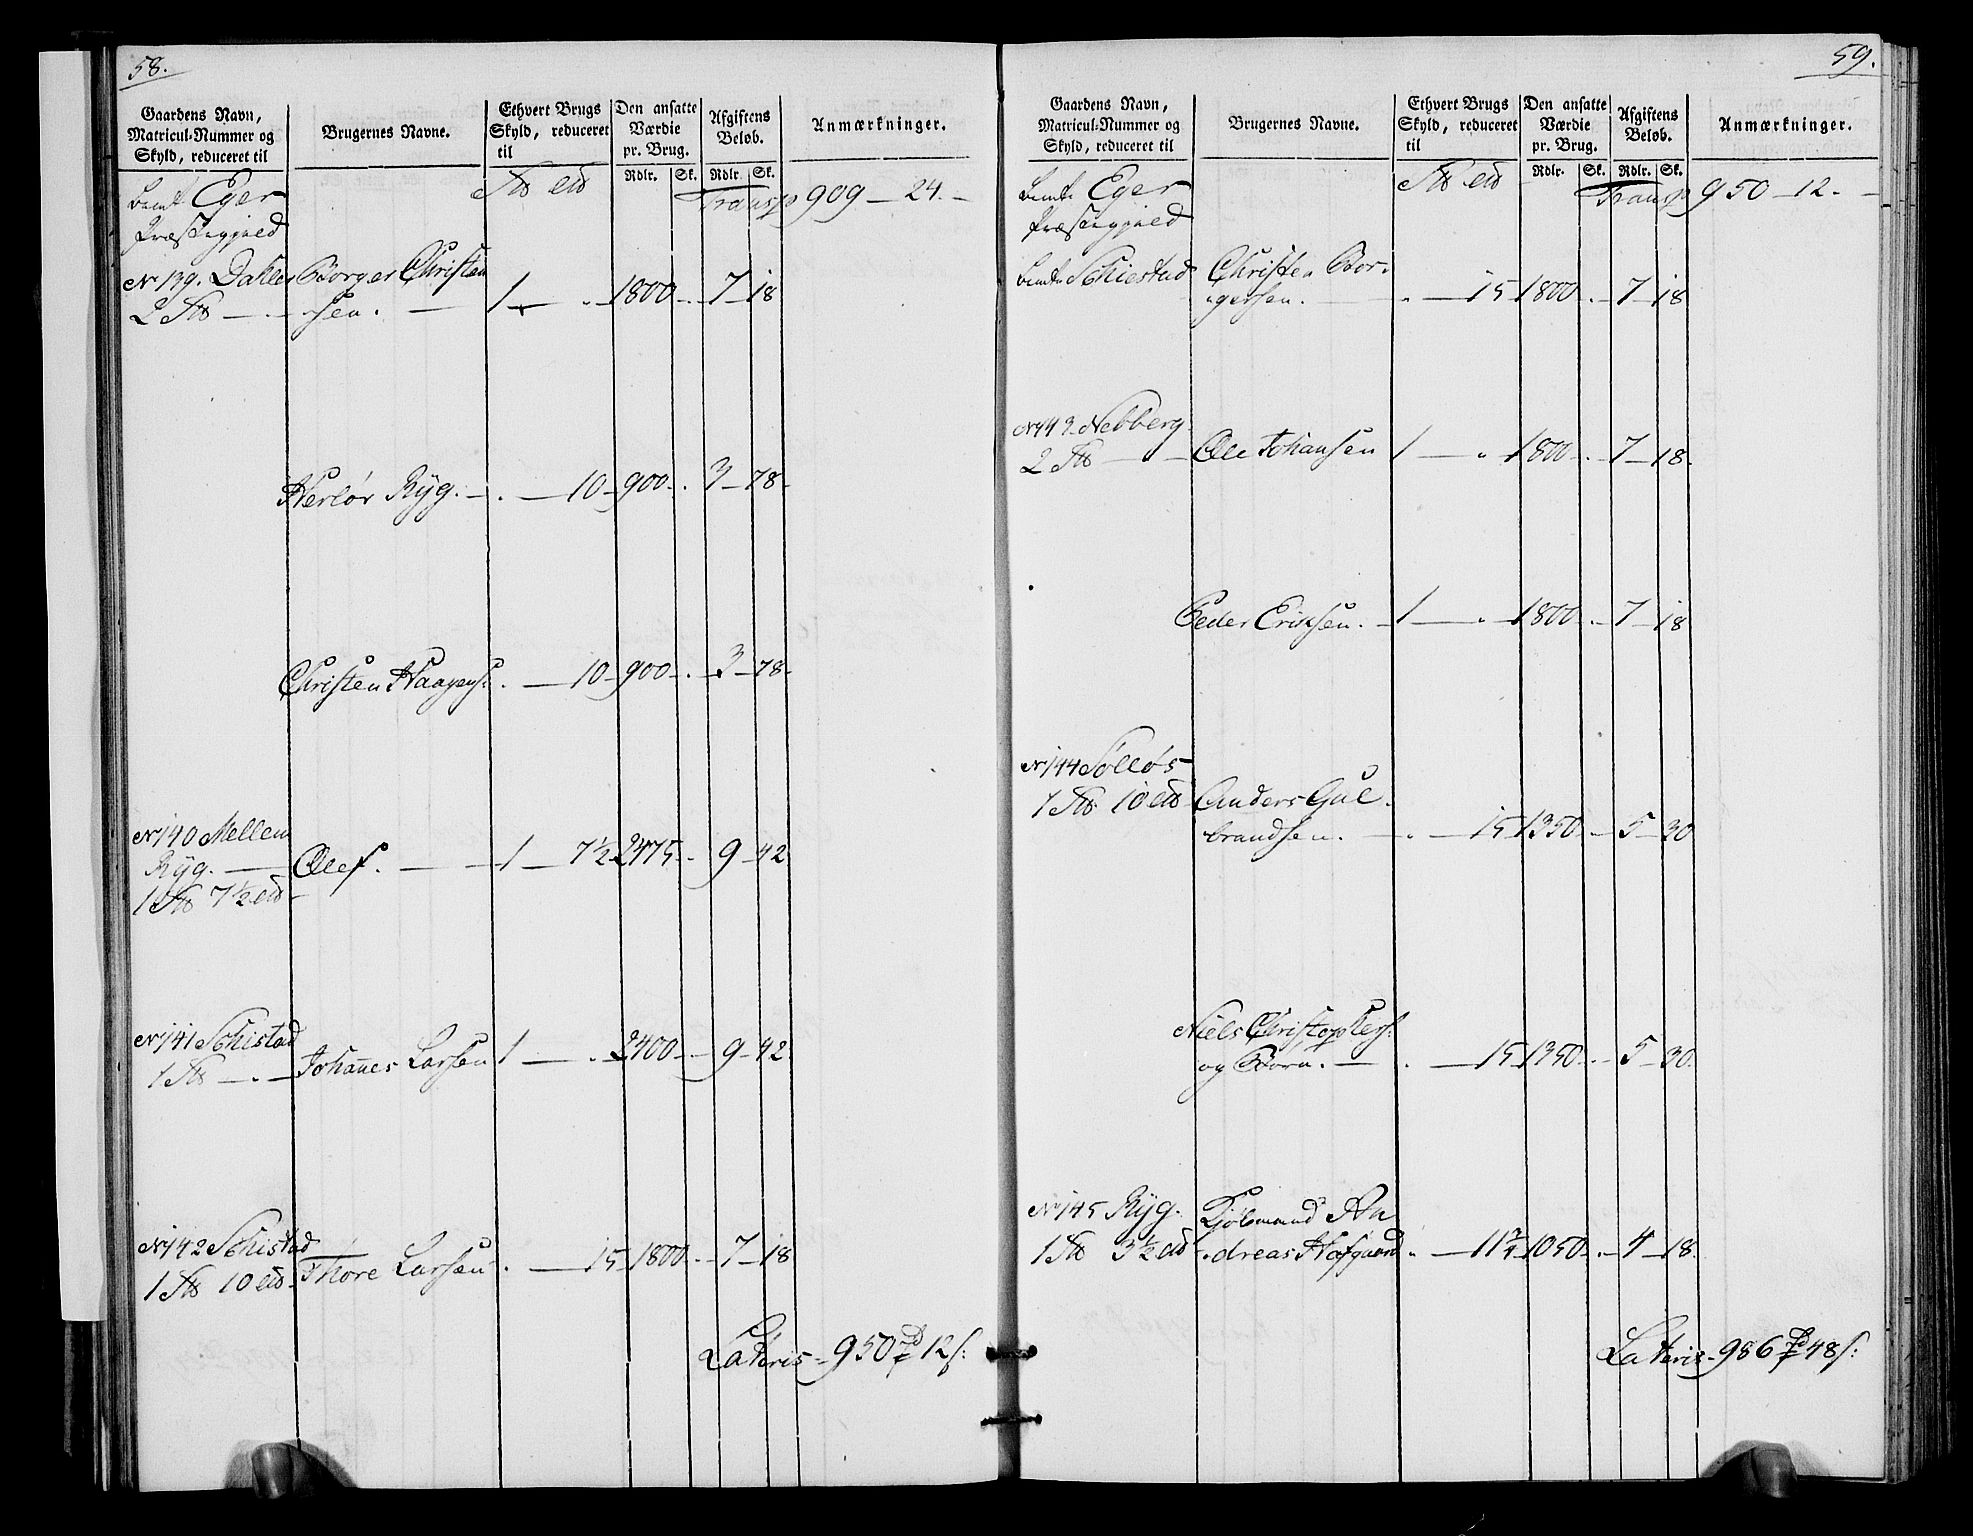 58.
Gaardens Navn,
Matricul-Nummer og
Skyld, reduceret til
Brugernes Navne.
Ethvert Brugs
Skyld, reduceret
til
Den ansatte
Værdie
pr. Brug.
Rdlr. Sk.
Afgiftens
Beløb.
Rdlr. Sk.
Anmærkninger.
Eger
Præstegjæld
Transp 909 — 24. —
No 139. Dahler Borger Christen
2 — . — sen. — 1 — . — 1800 — . — 7 — 18
Herlør Ryg. — . — 10 — 900 — . 3 — 78 -
Christen Haagens: . — 10 — 900 — . — 3 — 78 -
No 140 Mellem
Ryg. — Olef. — 1 — 7½ — 2475 — . 9 — 42
1 7½
No 141 Schistad
1 — . — Johannes Larsen 1 — . — 2400 — — 9 — 42
No 142 Schistad
1 10 Thore Larsen . — 15 — 1800 — . — 7 — 18
Lateris — 950 Rd 12 s:
59.
Gaardens Navn,
Matricul-Nummer og
Skyld, reduceret til
Brugernes Navne.
Ethvert Brugs
Skyld, reduceret
til
Den ansatte
Værdie
pr. Brug.
Rdlr. Sk.
Afgiftens
Beløb.
Rdlr. Sk.
Anmærkninger.
Eger
Præstegjæld
Transp 950 — 12. —
Schiestad Christen Bor-
gersen. — . — 15 1800 . — 7 — 18
No 143 Nebberg
2 — — Ole Johansen 1 — . — 1800 — . — 7 — 18.
Peder Eriksen. — 1 — . — 1800 — . — 7 — 18
No 144 Sølløs
1 10 Anders Gul-
brandsen. — . — 15 1350 — . — 5 — 30
Niels Christophers:
og Born. — . — 15 1350 — . — 5 — 30.
No 145 Ryg. Kjøbmand An
1 3½ dreas Hofgaard . — 11¾ 1050 — . — 4 — 18.
Lateris — 986 Rd 48 s: